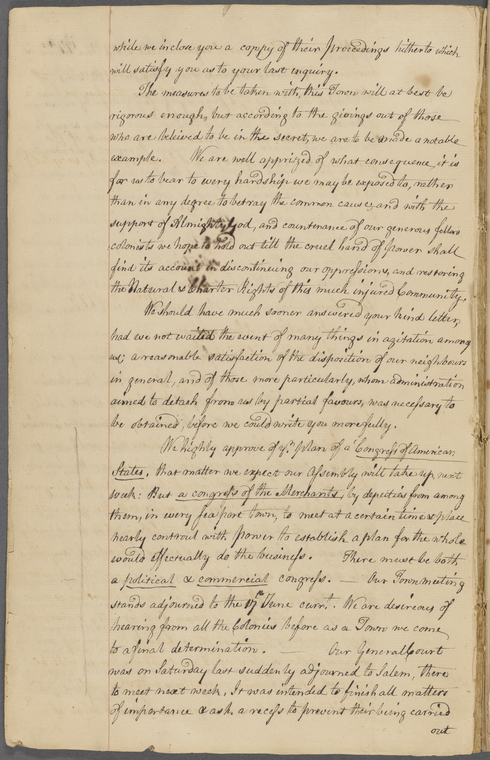 while we inclose you a copy of their proceedings hitherto which
will satisfy you as to your last enquiry.
The measures to be taken with, this Town will at best be
rigorous enough, but according to the givings out of those
who are believed to be in the secret, we are to be made a notable
example. We are well apprized of what consequence it is
for us to bear to every hardship we may be exposed to, rather
than in any degree to betray the common cause, and with the
support of Almighty God, and countenance of our generous fellow
colonists we hope to hold out till the cruel hand of power shall
find its account in discontinuing our oppressions, and restoring
the Natural & Charter Rights of this much injured Community.
We should have much sooner answered your kind letter,
had we not waited the event of many things in agitation among
us; a reasonable satisfaction of the disposition of our neighbours
in general, and of those more particularly, whom administration
aimed to detach from us by partial favours, was necessary to
be obtained, before we could write you more fully.
We highly approve of yr. plan of a Congress of American
States, that matter we expect our Assembly will take up next
week: But a congress of the Merchants, by deputies from among
them, in every sea port town, to meet at a certain time & place
nearly central with power to establish a plan for the whole
would effectually do the business. There must be both
a political & commercial congress. — Our Town meeting
stands adjourned to the 17th June currt. We are desireous of
hearing from all the Colonies before as a Town we come
to a final determination. — Our General Court
was on Saturday last suddenly adjourned to Salem, there
to meet next week. It was intended to finish all matters
of importance & ask a recess to prevent their being carried
out